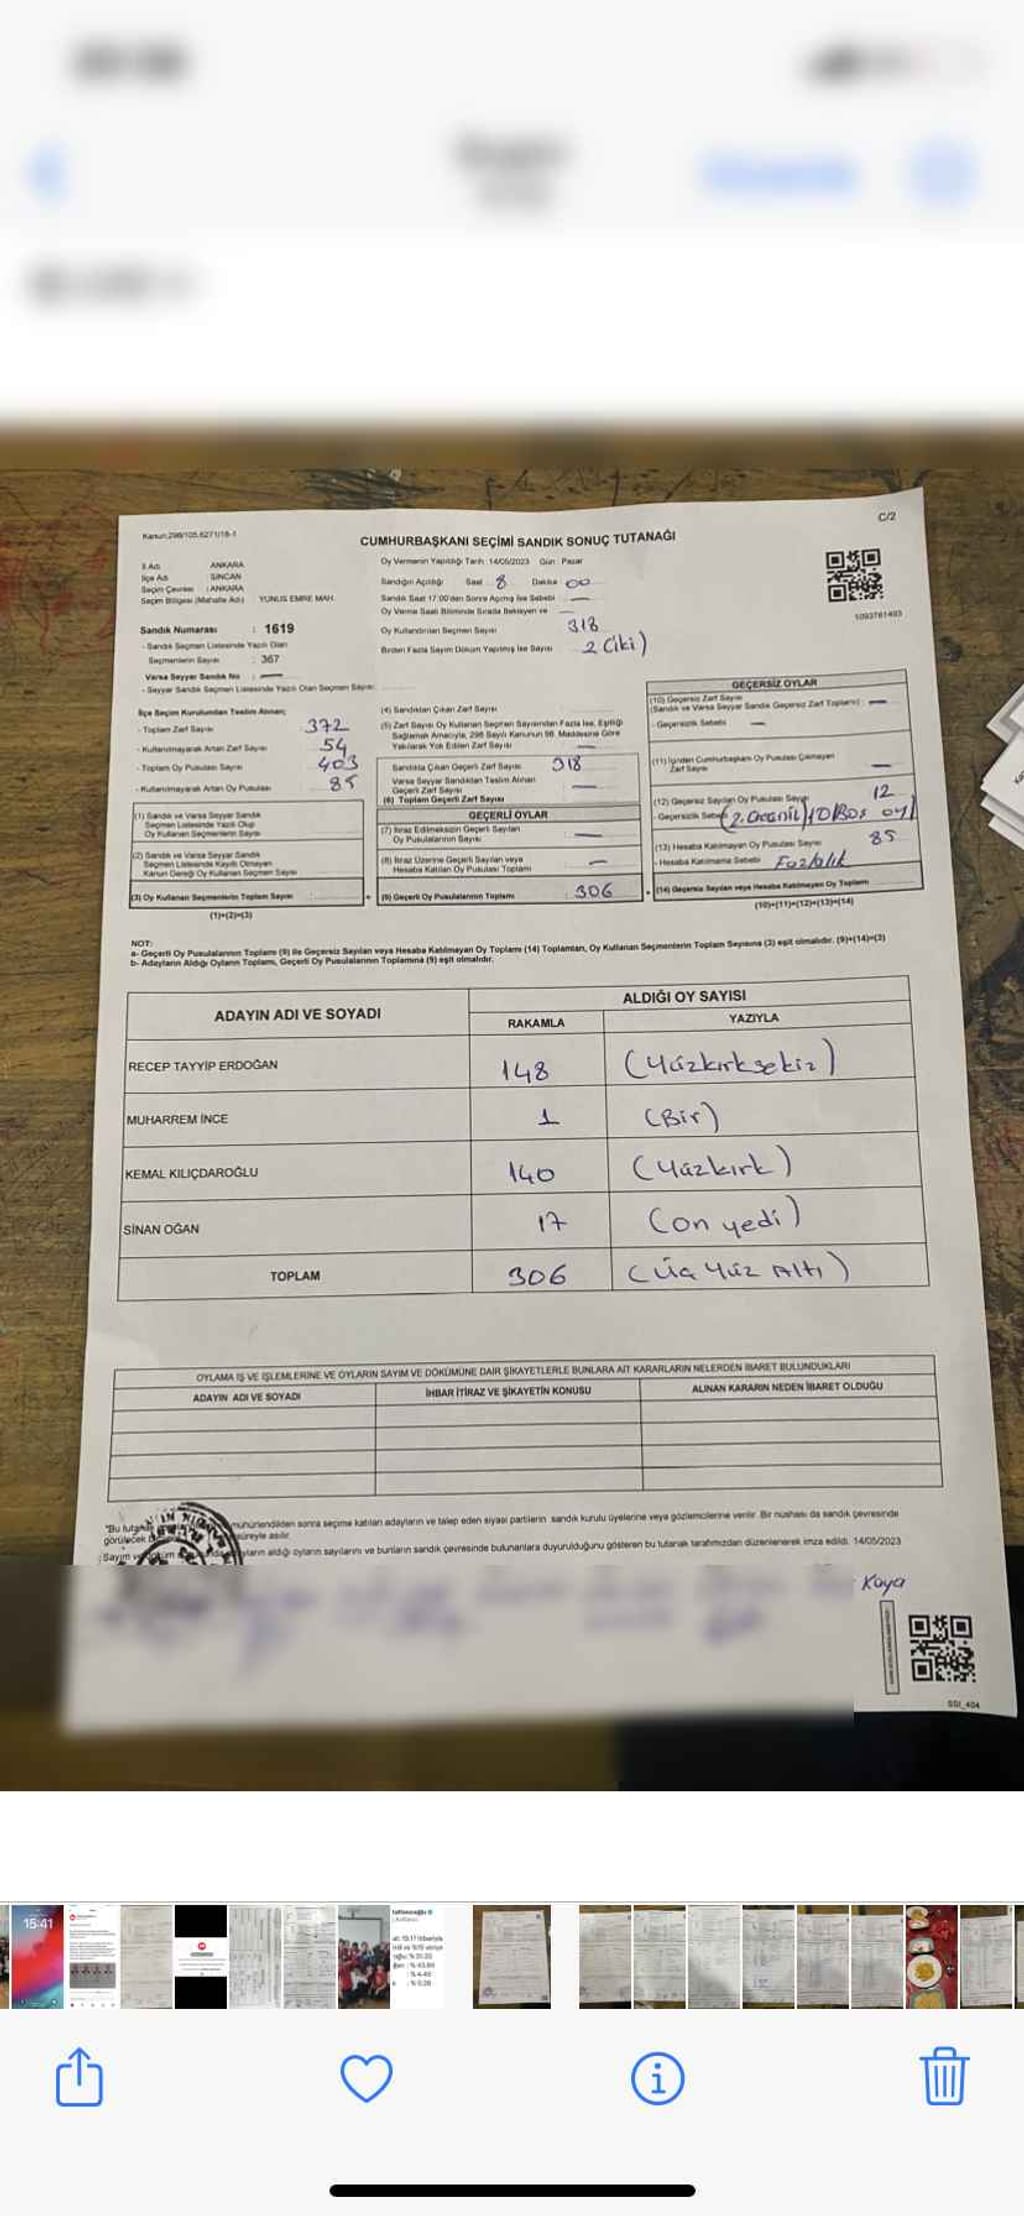 Kanun:298/105,6271/18-1
C/2
CUMHURBAŞKANI SEÇİMİ SANDIK SONUÇ TUTANAĞI
İl Adı ANKARA
İlçe Adı SİNCAN
Seçim Çevresi : ANKARA
Seçim Bölgesi (Mahalle Adı) YUNUS EMRE MAH.
Sandık Numarası : 1619
- Sandık Seçmen Listesinde Yazılı Olan
Seçmenlerin Sayısı : 367
Varsa Seyyar Sandık No : —
- Seyyar Sandık Seçmen Listesinde Yazılı Olan Seçmen Sayısı:
Oy Vermenin Yapıldığı Tarih : 14/05/2023 Gün : Pazar
Sandığın Açıldığı Saat 8 Dakika 00
Sandık Saat 17:00'den Sonra Açılmış İse Sebebi —
Oy Verme Saati Bitiminde Sırada Bekleyen ve —
Oy Kullandırılan Seçmen Sayısı 318
Birden Fazla Sayım Döküm Yapılmış İse Sayısı 2 (iki)
1093761493
İlçe Seçim Kurulundan Teslim Alınan;
- Toplam Zarf Sayısı 372
- Kullanılmayarak Artan Zarf Sayısı 54
- Toplam Oy Pusulası Sayısı 403
- Kullanılmayarak Artan Oy Pusulası 85
(1) Sandık ve Varsa Seyyar Sandık
Seçmen Listesinde Yazılı Olup
Oy Kullanan Seçmenlerin Sayısı
(2) Sandık ve Varsa Seyyar Sandık
Seçmen Listesinde Kayıtlı Olmayan
Kanun Gereği Oy Kullanan Seçmen Sayısı
(3) Oy Kullanan Seçmenlerin Toplam Sayısı
(1)+(2)=(3)
(4) Sandıktan Çıkan Zarf Sayısı
(5) Zarf Sayısı Oy Kullanan Seçmen Sayısından Fazla İse, Eşitliği
Sağlamak Amacıyla, 298 Sayılı Kanunun 98. Maddesine Göre
Yakılarak Yok Edilen Zarf Sayısı —
Sandıkta Çıkan Geçerli Zarf Sayısı 318
Varsa Seyyar Sandıktan Teslim Alınan
Geçerli Zarf Sayısı —
(6) Toplam Geçerli Zarf Sayısı
GEÇERLİ OYLAR
(7) İtiraz Edilmeksizin Geçerli Sayılan
Oy Pusulalarının Sayısı —
(8) İtiraz Üzerine Geçerli Sayılan veya
Hesaba Katılan Oy Pusulası Toplamı —
(9) Geçerli Oy Pusulalarının Toplamı : 306
GEÇERSİZ OYLAR
(10) Geçersiz Zarf Sayısı
(Sandık ve Varsa Seyyar Sandık Geçersiz Zarf Toplamı) : —
- Geçersizlik Sebebi —
(11) İçinden Cumhurbaşkanı Oy Pusulası Çıkmayan
Zarf Sayısı —
(12) Geçersiz Sayılan Oy Pusulası Sayısı 12
- Geçersizlik Sebebi 10 Boş oy
(13) Hesaba Katılmayan Oy Pusulası Sayısı 85
- Hesaba Katılmama Sebebi Fazlalık
(14) Geçersiz Sayılan veya Hesaba Katılmayan Oy Toplamı
(10)+(11)+(12)+(13)=(14)
NOT:
a- Geçerli Oy Pusulalarının Toplamı (9) ile Geçersiz Sayılan veya Hesaba Katılmayan Oy Toplamı (14) Toplamları, Oy Kullanan Seçmenlerin Toplam Sayısına (3) eşit olmalıdır. (9)+(14)=(3)
b- Adayların Aldığı Oyların Toplamı, Geçerli Oy Pusulalarının Toplamına (9) eşit olmalıdır.
ADAYIN ADI VE SOYADI
ALDIĞI OY SAYISI
RAKAMLA YAZIYLA
RECEP TAYYİP ERDOĞAN 148 (Yüzkırksekiz)
MUHARREM İNCE 1 (Bir)
KEMAL KILIÇDAROĞLU 140 (Yüzkırk)
SİNAN OĞAN 17 (on yedi)
TOPLAM 306 (Üç Yüz Altı)
OYLAMA İŞ VE İŞLEMLERİNE VE OYLARIN SAYIM VE DÖKÜMÜNE DAİR ŞİKAYETLERLE BUNLARA AİT KARARLARIN NELERDEN İBARET BULUNDUKLARI
ADAYIN ADI VE SOYADI İHBAR İTİRAZ VE ŞİKAYETİN KONUSU ALINAN KARARIN NEDEN İBARET OLDUĞU
"Bu mühürlendikten sonra seçime katılan adayların ve talep eden siyasi partilerin sandık kurulu üyelerine veya gözlemcilerine verilir. Bir nüshası da sandık çevresinde
görülecek süreyle asılır.
Sayım ve aldığı oyların sayılarını ve bunların sandık çevresinde bulunanlara duyurulduğunu gösteren bu tutanak tarafımızdan düzenlenerek imza edildi. 14/05/2023
Kaya
SSI_404
15:41